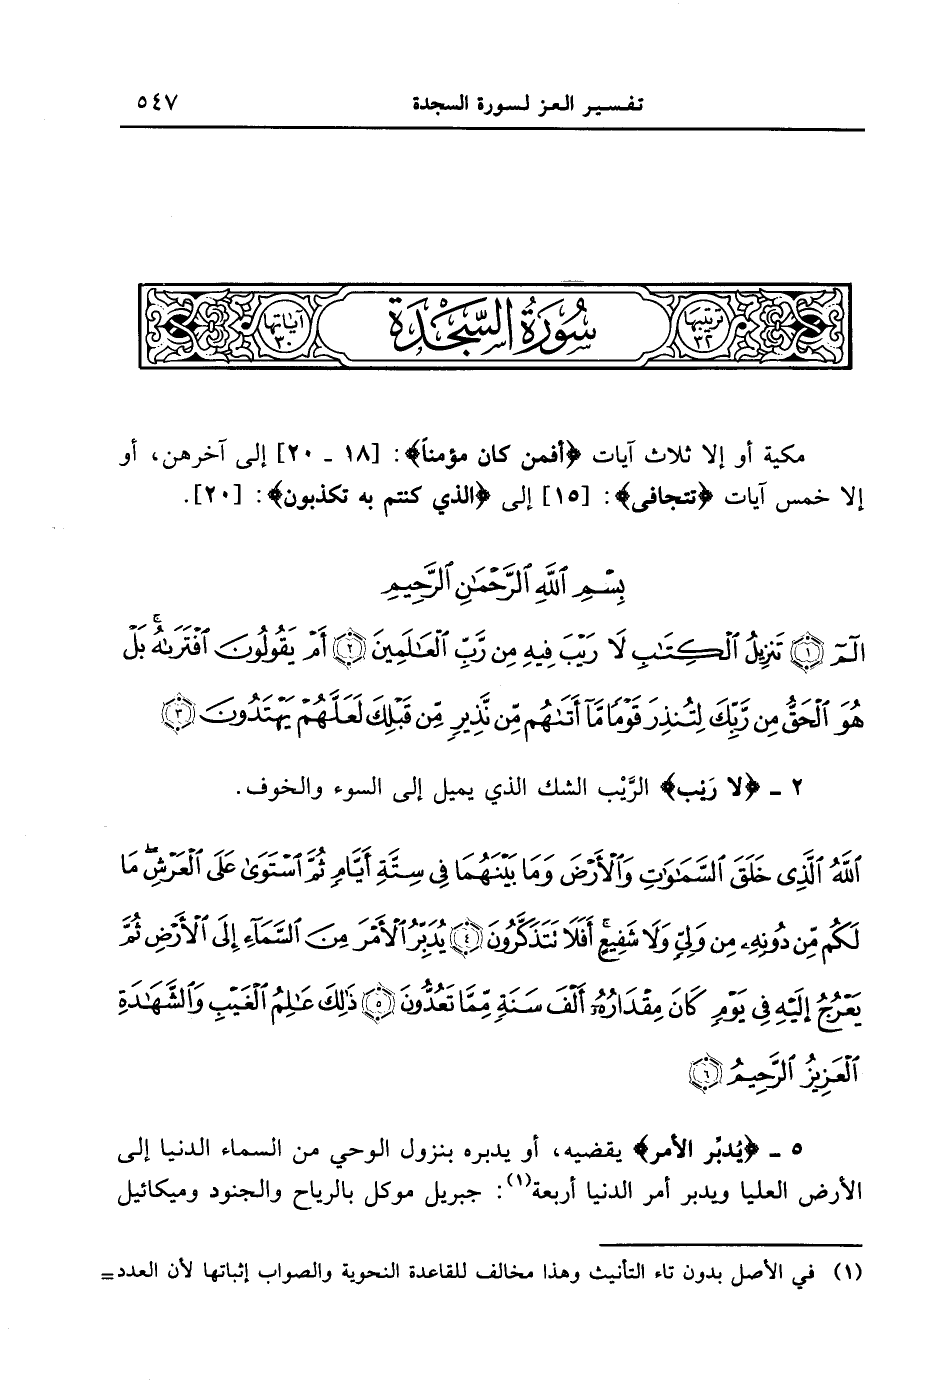 تفسير العز لسورة السجدة ٥٤٧
ترتيبها ٣٢ سُورَةُ السَّجْدَة آياتها ٣٠
مكية أو إلا ثلاث آيات ﴿أفمن كان مؤمناً﴾: [١٨ ـ ٢٠] إلى آخرهن، أو
إلا خمس آيات ﴿تتجافى﴾: [١٥] إلى ﴿الذي كنتم به تكذبون﴾: [٢٠].
بِسْمِ ٱللَّهِ ٱلرَّحْمَٰنِ ٱلرَّحِيمِ
الٓمٓ ۝١ تَنزِيلُ ٱلْكِتَٰبِ لَا رَيْبَ فِيهِ مِن رَّبِّ ٱلْعَٰلَمِينَ ۝٢ أَمْ يَقُولُونَ ٱفْتَرَىٰهُ ۚ بَلْ
هُوَ ٱلْحَقُّ مِن رَّبِّكَ لِتُنذِرَ قَوْمًا مَّآ أَتَىٰهُم مِّن نَّذِيرٍ مِّن قَبْلِكَ لَعَلَّهُمْ يَهْتَدُونَ ۝٣
٢ ـ ﴿لا رَيْب﴾ الرَّيْب الشك الذي يميل إلى السوء والخوف.
ٱللَّهُ ٱلَّذِى خَلَقَ ٱلسَّمَٰوَٰتِ وَٱلْأَرْضَ وَمَا بَيْنَهُمَا فِى سِتَّةِ أَيَّامٍ ثُمَّ ٱسْتَوَىٰ عَلَى ٱلْعَرْشِ ۖ مَا
لَكُم مِّن دُونِهِۦ مِن وَلِىٍّ وَلَا شَفِيعٍ ۚ أَفَلَا تَتَذَكَّرُونَ ۝٤ يُدَبِّرُ ٱلْأَمْرَ مِنَ ٱلسَّمَآءِ إِلَى ٱلْأَرْضِ ثُمَّ
يَعْرُجُ إِلَيْهِ فِى يَوْمٍ كَانَ مِقْدَارُهُۥٓ أَلْفَ سَنَةٍ مِّمَّا تَعُدُّونَ ۝٥ ذَٰلِكَ عَٰلِمُ ٱلْغَيْبِ وَٱلشَّهَٰدَةِ
ٱلْعَزِيزُ ٱلرَّحِيمُ ۝٦
٥ ـ ﴿يُدبِّر الأمر﴾ يقضيه، أو يدبره بنزول الوحي من السماء الدنيا إلى
الأرض العليا ويدبر أمر الدنيا أربعة(١): جبريل موكل بالرياح والجنود وميكائيل
(١) في الأصل بدون تاء التأنيث وهذا مخالف للقاعدة النحوية والصواب إثباتها لأن العدد=